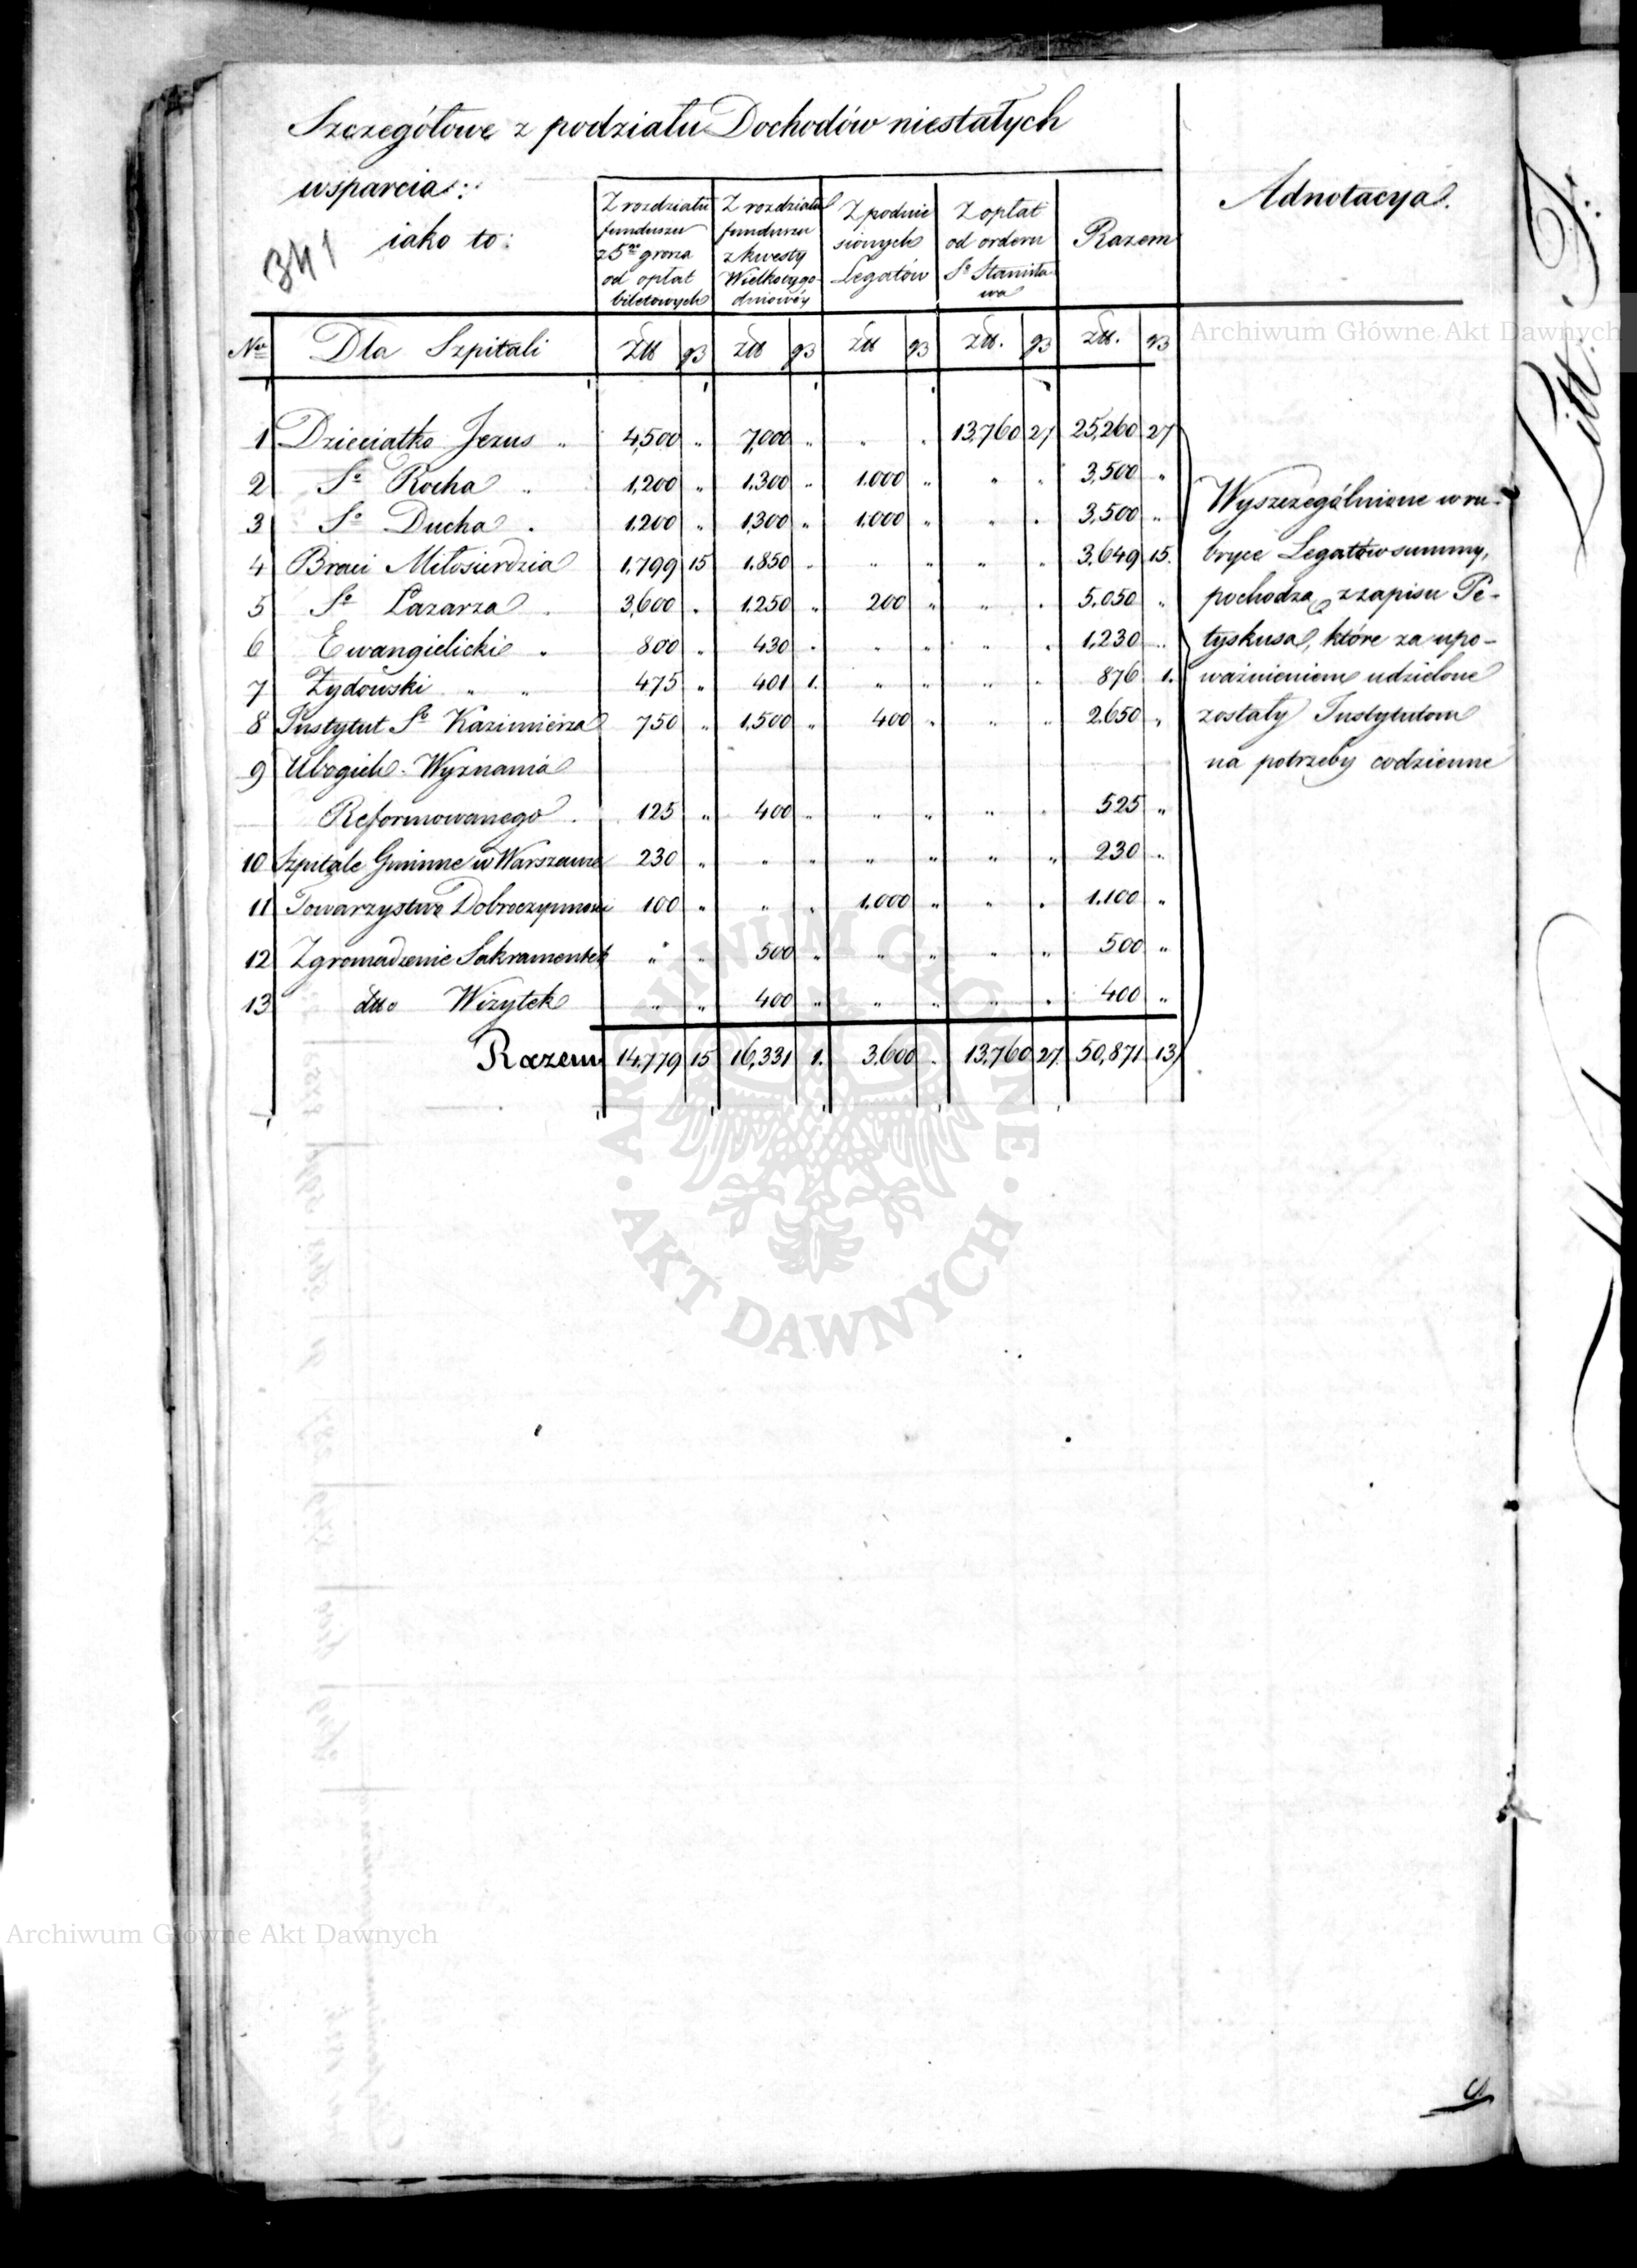 Szczegółowe z podziału Dochodów niestałych
wsparcia:
iako to:
341
Z rozdziału funduszu z 5go grosza od opłat biletowych
Z rozdziału funduszu z kwesty Wielkotygodniowéy
Z podniesionych Legatów
Z opłat od orderu So Stanisława
Razem
Adnotacya.
No Dla Szpitali Złł gr Złł gr Złł gr Złł. gr Złł. gr
1 Dzieciatko Jezus " 4,500 " 7,000 " " " 13,760 27 25,260 27
2 So Rocha " 1,200 " 1.300 " 1.000 " " " 3,500 "
3 So Ducha . 1.200 " 1,300 " 1.000 " " " 3,500 "
4 Braci Miłosierdzia 1,799 15 1.850 " " " " " 3.649 15.
5 So Łazarza . 3,600 " 1.250 " 200 " " " 5.050 "
6 Ewangielicki " 800 " 430 " " " " " 1,230 "
7 Żydowski " " 475 " 401 1. " " " " 876 1.
8 Instytut So Kazimierza 750 " 1,500 " 400 " " " 2.650 "
9 Ubogich Wyznania
Reformowanego . 125 " 400 " " " " " 525 "
10 Szpitale Gminne w Warszawie 230 " " " " " " " 230 "
11 Towarzystwo Dobroczynności 100 " " " 1.000 " " " 1.100 "
12 Zgromadzenie Sakramentek " " 500 " " " " " 500 "
13 dtto Wizytek " " 400 " " " " " 400 "
Razem 14,779 15 16,331 1. 3.600 " 13,760 27. 50,871 13
Wyszczególnione w ru-
bryce Legatów summy,
pochodzą z zapisu Pe-
tyskusa, które za upo-
ważnieniem udzielone
zostały Instytutom
na potrzeby codzienne
Litt. F.
Archiwum Główne Akt Dawnych
ARCHIWUM GŁÓWNE AKT DAWNYCH
Archiwum Główne Akt Dawnych